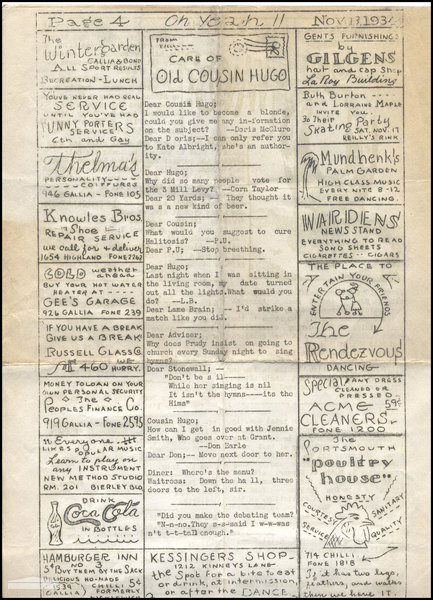 Page 4
Oh Yeah !!
Nov. 13, 1934
The
Wintergarden
GALLIA & BOND
ALL SPORT RESULTS
RECREATION - LUNCH
YOU'VE NEVER HAD REAL
SERVICE
UNTIL YOU'VE HAD
UNNY PORTERS
SERVICE
6TH and GAY
Thelma's
PERSONALITY
COIFFURES
946 GALLIA - FONE 105
Knowles Bros.
Shoe
REPAIR SERVICE
we call for & deliver
1654 HIGHLAND FONE 2262
COLD weather
ahead
BUY YOUR HOT WATER
HEATER AT
GEE'S GARAGE
926 GALLIA FONE 239
IF YOU HAVE A BREAK
GIVE US A BREAK
RUSSELL GLASS Co.
460 HURRY.
MONEY TO LOAN ON YOUR
OWN PERSONAL SECURITY
The
PEOPLES FINANCE Co.
919 GALLIA - FONE 2595
Everyone
LIKES POPULAR MUSIC
Learn to play on
any INSTRUMENT
NEW METHOD STUDIO
RM. 201 BIERLEY BLD
DRINK
Coca-Cola
IN BOTTLES
HAMBURGER INN
NO 3
5¢ BUY THEM BY THE SACK 5¢
DELICIOUS HO-NADS
1539 CHILLI
GALLIA FORMERLY
FROM
CARE OF
Old COUSIN HUGO
Dear Cousin Hugo;
I would like to become a blonde,
could you give me any in-formation
on the subject? --Doris McClure
Dear Doris;--I can only refer you
to Kate Albright, she's an author-
ity.
Dear Hugo;
Why did so many people vote for
the 3 Mill Levy? --Corn Taylor
Dear 20 Yards; -- They thought it
was a new kind of beer.
Dear Cousin;
What would you suggest to cure
Halitosis? --P.U.
Dear P.U; --Stop breathing.
Dear Hugo;
Last night when I was sitting in
the living room, my date turned
out all the lights.What would you
do? --L.B.
Dear Lame Brain; -- I'd strike a
match like you did.
Dear Adviser;
Why does Prudy insist on going to
church every Sunday night to sing
hymns?
Dear Stonewall; --
"Don't be a ill----
While her singing is nil
It isn't the hymns----its the
Hims"
Cousin Hugo:
How can I get in good with Jennie
Smith, Who goes over at Grant.
--Don Darle
Dear Don;-- Move next door to her.
Diner: Where's the menu?
Waitress: Down the hall, three
doors to the left, sir.
"Did you make the debating team?
"N-n-no.They s-s-said I w-w-was
n't t-t-tall enough."
KESSINGERS SHOP
1212 KINNEYS LANE
the Spot for a bite to eat
or drink, at intermission,
or after the DANCE
GENTS FURNISHING
by
GILGENS
hat and cap Shop
La Roy Building
Ruth Burton
and LORRAINE MAPLE
INVITE YOU
To Their Party
Skating SAT. NOV. 17
REILLY'S RINK
Mundhenk's
PALM GARDEN
HIGH CLASS MUSIC
EVERY NITE 8-12
FREE DANCING.
WARDENS
NEWS STAND
EVERYTHING TO READ
SONG SHEETS
CIGARETTES - CIGARS
THE PLACE TO
ENTERTAIN YOUR FRIENDS
The
Rendezvous
DANCING
Special ANY DRESS
CLEANED or
PRESSED
59¢
ACME
CLEANERS
FONE 1200
The
PORTSMOUTH
"poultry
house"
HONESTY
COURTESY
SANITARY
SERVICE
QUALITY
714 CHILLI
FONE 1818
If it has two legs,
feathers, and wates